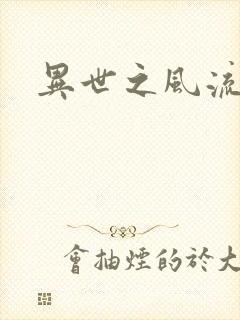 異世之風流
會抽煙的於大